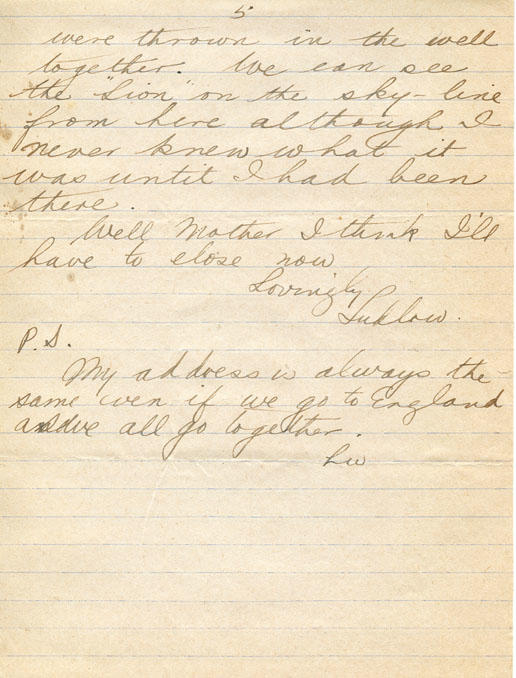 5
were thrown in the well
together. We can see
the "Lion" on the sky-line
from here although I
never knew what it
was until I had been
there.
Well Mother I think I'll
have to close now
Lovingly
Ludlow.
P.S.
My address is always the
same even if we go to England
and we all go together.
Lu